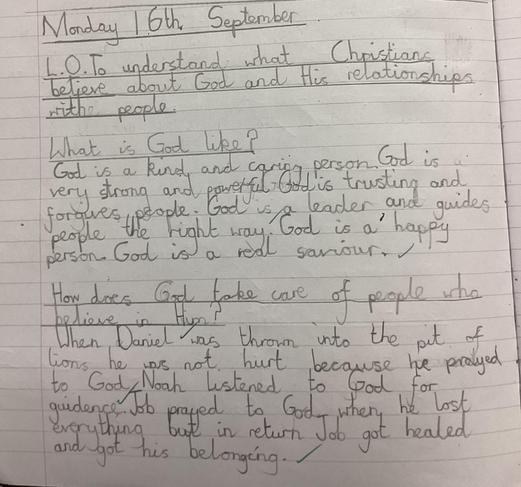 Monday 16th September
L.O. To understand what Christians
believe about God and His relationships
with people.
What is God like?
God is a kind and caring person. God is
very strong and powerful. God is trusting and
forgives people. God is a leader and guides
people the right way. God is a happy
person. God is a real saviour.
How does God take care of people who
believe in Him?
When Daniel was thrown into the pit of
lions he was not hurt because he prayed
to God. Noah listened to God for
guidence. Job prayed to God when he lost
everything but in return Job got healed
and got his belonging.